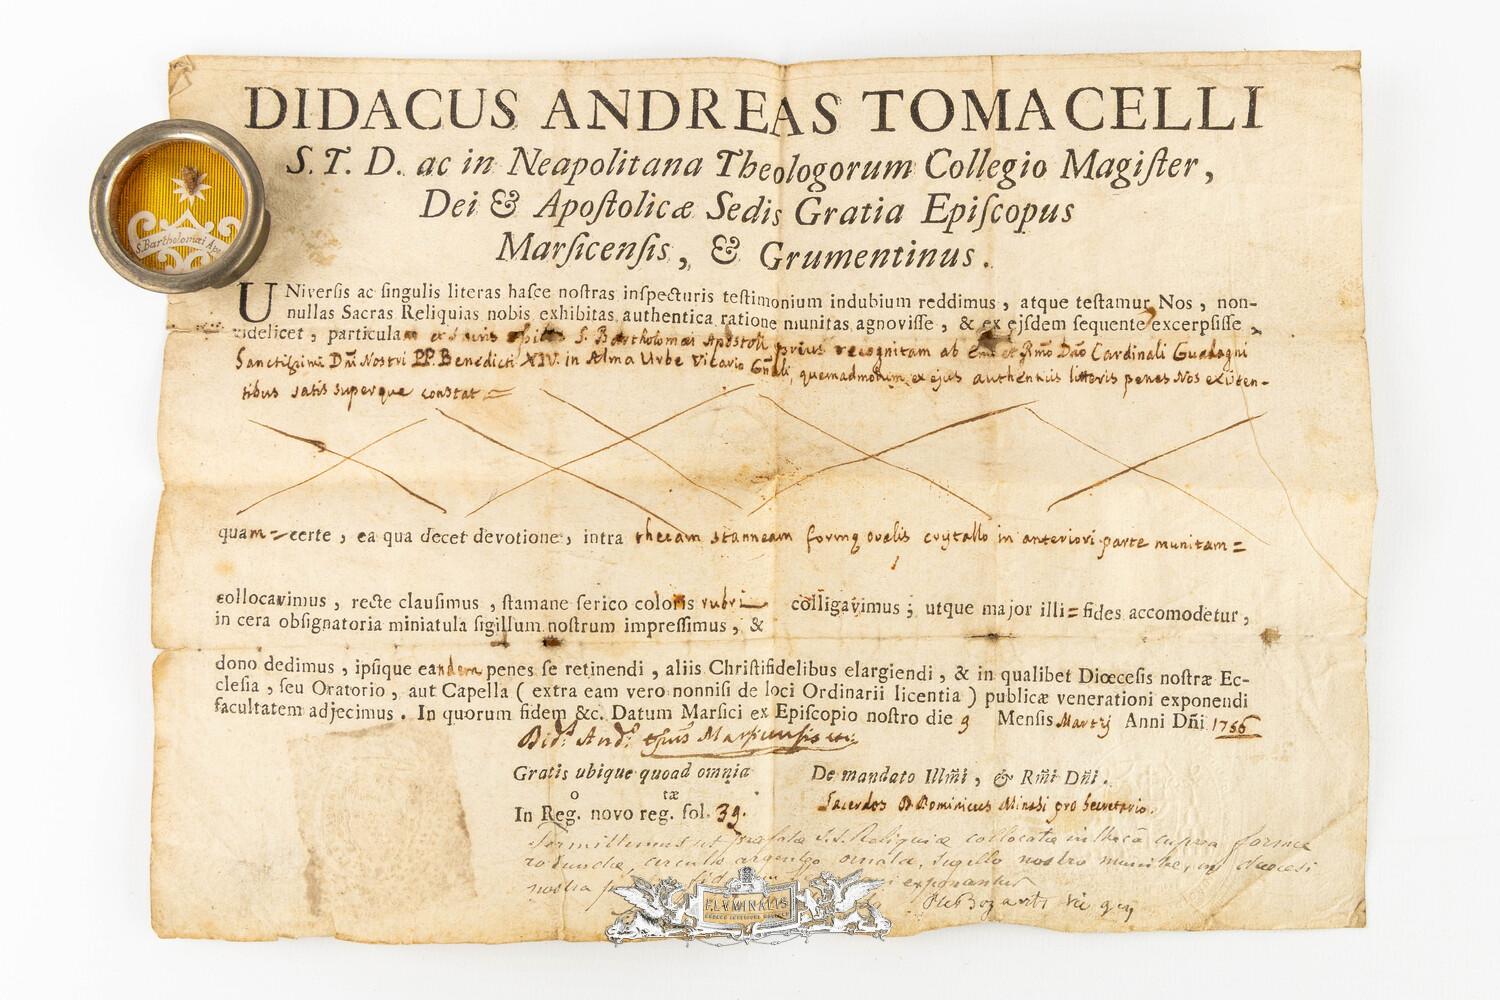 DIDACUS ANDREAS TOMACELLI
S. T. D. ac in Neapolitana Theologorum Collegio Magiſter,
Dei & Apoſtolicæ Sedis Gratia Epiſcopus
Marſicenſis, & Grumentinus.
S. Bartholomæi Ap.
UNiverſis ac ſingulis literas haſce noſtras inſpecturis teſtimonium indubium reddimus, atque teſtamur Nos, non-
nullas Sacras Reliquias nobis exhibitas authentica ratione munitas agnoviſſe, & ex ejſdem ſequente excerpſiſſe,
videlicet, particulam S. Bartholomæi Apostoli prius recognitam ab Emo et Rmo Dno Cardinali Guadagni
Sanctissimi Dñi Nostri PP. Benedicti XIV. in Alma Urbe Vicario Gñali, quemadmodum ex ejus authenticis litteris penes Nos existen-
tibus satis superque constat =
quam = certe, ea qua decet devotione, intra thecam stanneam formę ovalis crystallo in anteriori parte munitam =
collocavimus, recte clauſimus, ſtamane ſerico coloris rubri colligavimus; utque major illi = fides accomodetur,
in cera obſignatoria miniatula ſigillum noſtrum impreſſimus, &
dono dedimus, ipſique eandem penes ſe retinendi, aliis Chriſtifidelibus elargiendi, & in qualibet Diœceſis noſtræ Ec-
cleſia, ſeu Oratorio, aut Capella ( extra eam vero nonniſi de loci Ordinarii licentia ) publicæ venerationi exponendi
facultatem adjecimus. In quorum fidem &c. Datum Marſici ex Epiſcopio noſtro die 9 Mensis Martij Anni Dñi 1756
Did.s And.s
Gratis ubique quoad omnia
o tæ
In Reg. novo reg. fol. 39.
De mandato Illm̃i, & Rm̃i Dñi.
Sacerdos D. Dominicus Minasi pro Secretario.
Permittimus ut præfatæ S.S. Reliquiæ collocatæ in theca cuprea formæ
rotundæ, circulo argenteo ornatæ, sigillo nostro munitæ, in diœcesi
nostra exponantur
Vic gen
FLVMINALIS